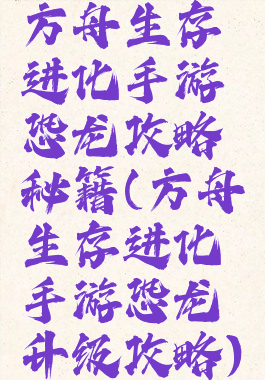 方舟生存
进化手游
恐龙攻略
秘籍(方舟
生存进化
手游恐龙
升级攻略)